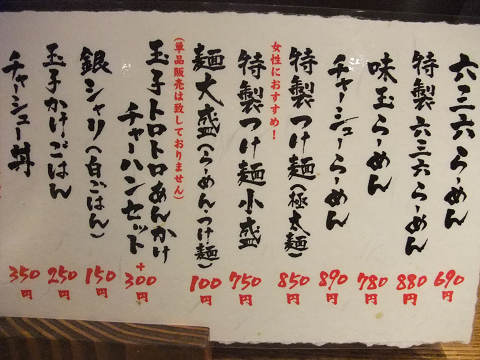 六三六らーめん
690円
特製六三六らーめん
880円
味玉らーめん
780円
チャーシューらーめん
890円
特製つけ麺(極太麺)
850円
女性におすすめ!
特製つけ麺小盛
750円
麺大盛(らーめん・つけ麺)
100円
玉子トロトロあんかけ
チャーハンセット
+300円
(単品販売は致しておりません)
銀シャリ(白ごはん)
150円
玉子かけごはん
250円
チャーシュー丼
350円